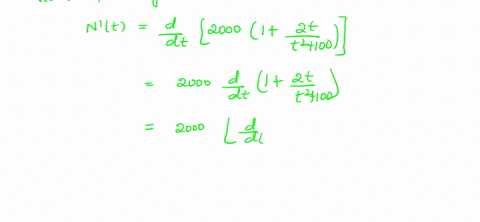 N'(t) = d/dt [2000 (1 + 2t/t²+100)]
= 2000 d/dt (1 + 2t/t²+100)
= 2000 [d/dt